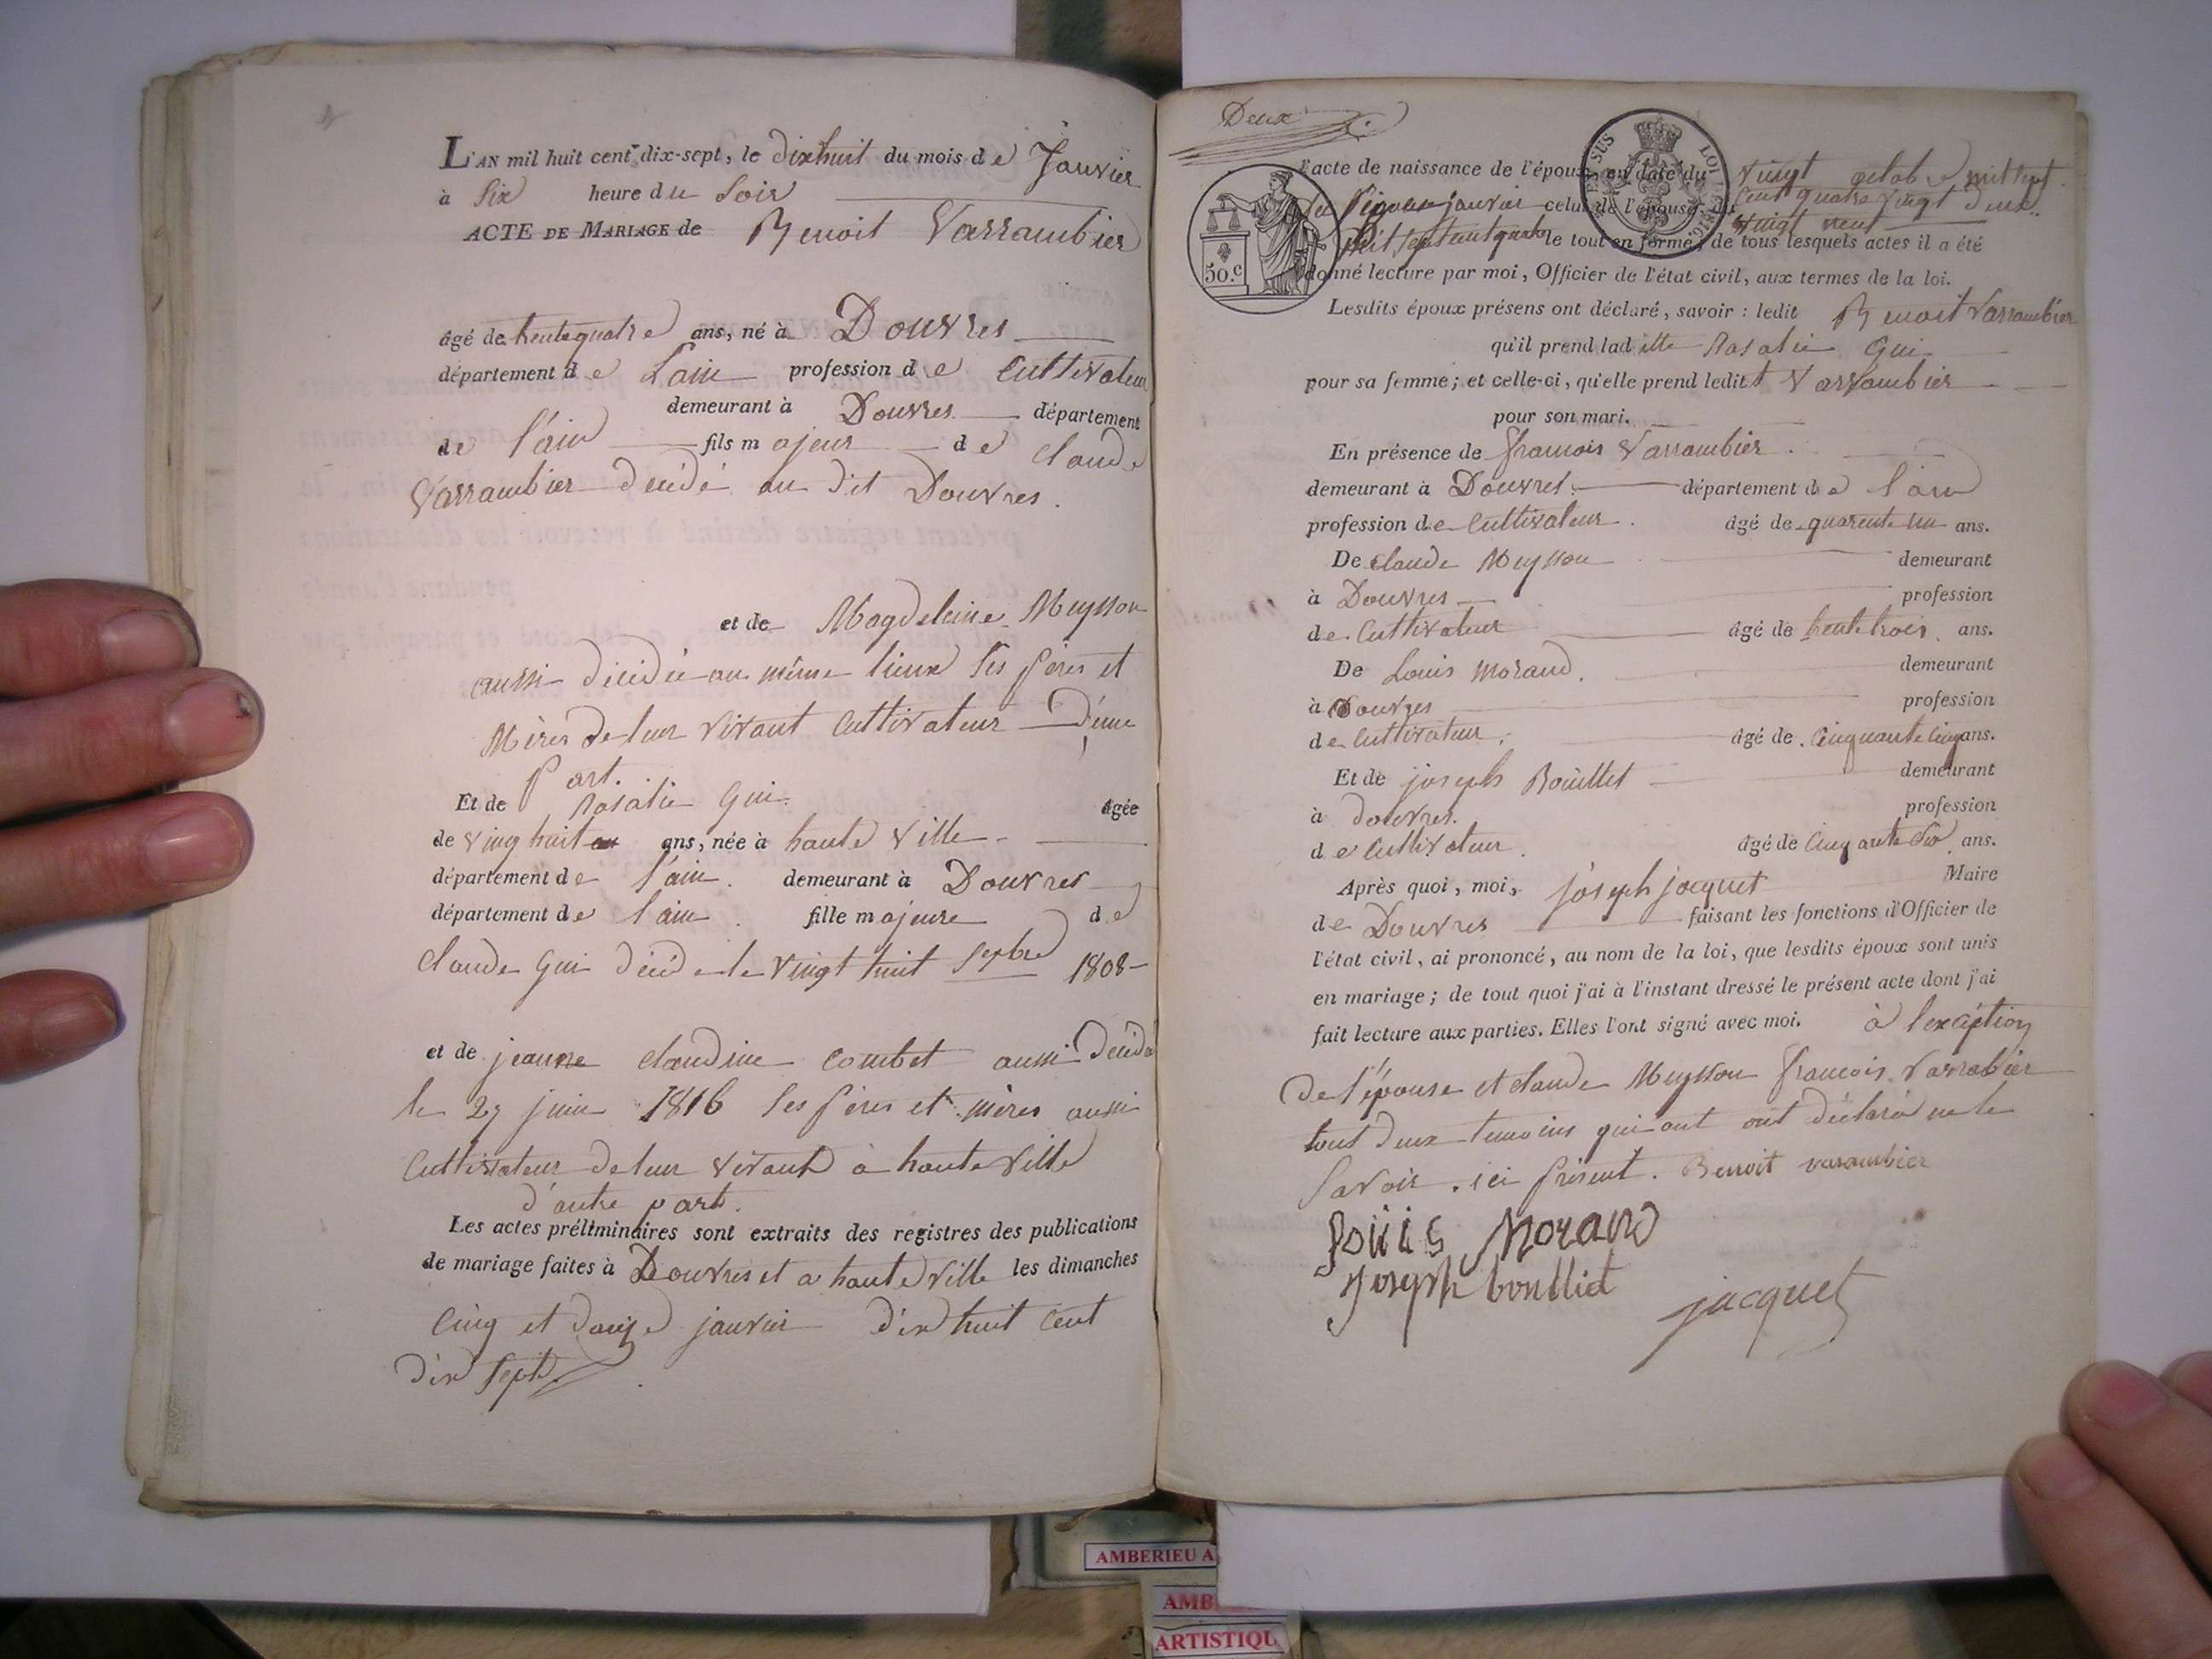 L'AN mil huit cent dix-sept, le dixhuit du mois de Janvier
à Six heure du Soir
ACTE DE MARIAGE de Benoit Varrambier
âgé de trentequatre ans, né à Douvres
département de Lain profession de Cultivateur
demeurant à Douvres département
de l'ain fils majeur de Claude
Varrambier décidé au dit Douvres.
et de Magdeleine Meysson
aussi décidée au même lieux Ses pères et
Mères de leur vivant Cultivateur D'une
Part.
Et de Rosalie Gui âgée
de vinghuit ans, née à haute ville
département de l'ain. demeurant à Douvres
département de l'ain. fille majeure de
Claude Gui décidé le vingt huit Sepbre 1808
et de jeanne Claudine Combet aussi décidé
le 27 juin 1816 Ses pères et mères aussi
Cultivateur de leur vivant à haute ville
d'autre part.
Les actes préliminaires sont extraits des registres des publications
de mariage faites à Douvres et a haute ville les dimanches
Cinq et douze janvier dix huit Cent
dix Sept.
Deux
l'acte de naissance de l'époux en date du vingt octobre mil sept
Cent quatre vingt deux
janvier celui de l'épouse, du vingt neuf
le tout en forme, de tous lesquels actes il a été
donné lecture par moi, Officier de l'état civil, aux termes de la loi.
SUS LOI
50.c
Lesdits époux présens ont déclaré, savoir : ledit Benoit Varrambier
qu'il prend ladite Rosalie Gui
pour sa femme ; et celle-ci, qu'elle prend ledit Varrambier
pour son mari.
En présence de francois Varrambier.
demeurant à Douvres département de l'ain
profession de Cultivateur. âgé de quarente un ans.
De Claude Meysson demeurant
à Douvres profession
de Cultivateur âgé de trente trois. ans.
De Louis Morand. demeurant
à Douvres profession
de Cultivateur. âgé de Cinquante Cinq ans.
Et de joseph Bouillet demeurant
à douvres. profession
de Cultivateur. âgé de Cinqante Six ans.
Après quoi, moi, joseph jacquet Maire
de Douvres faisant les fonctions d'Officier de
l'état civil, ai prononcé, au nom de la loi, que lesdits époux sont unis
en mariage ; de tout quoi j'ai à l'instant dressé le présent acte dont j'ai
fait lecture aux parties. Elles l'ont signé avec moi. à l'exception
De l'épouse et claude Meysson francois Varrabier
tout deux temoins qui ont ont déclaré ne le
Savoir. ici présent. Benoit varambier
Louis Morand
Joseph boullict
jacquet
AMBERIEU A
AMB
ARTISTIQU